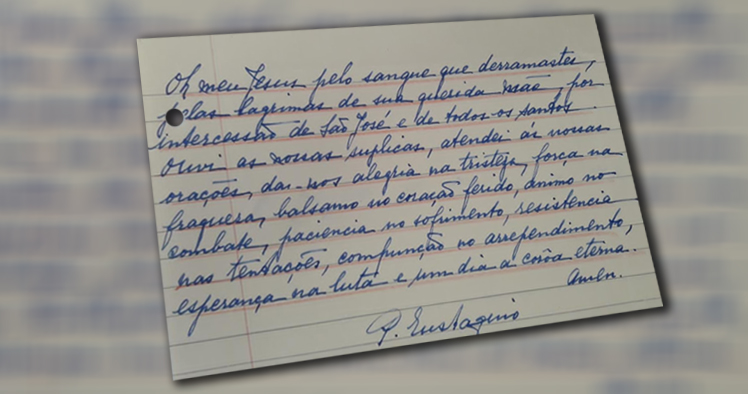 Oh meu Jesus pelo sangue que derramastes,
pelas lagrimas de sua querida Mãe, por
intercessão de São José e de todos os santos
ouvi as nossas suplicas, atendei ás nossas
orações, dai-nos alegria na tristeza, força na
fraqueza, balsamo no coração ferido, animo no
combate, paciencia no sofrimento, resistência
nas tentações, compunção no arrependimento,
esperança na luta e um dia a corôa eterna.
Amen.
P. Eustaquio